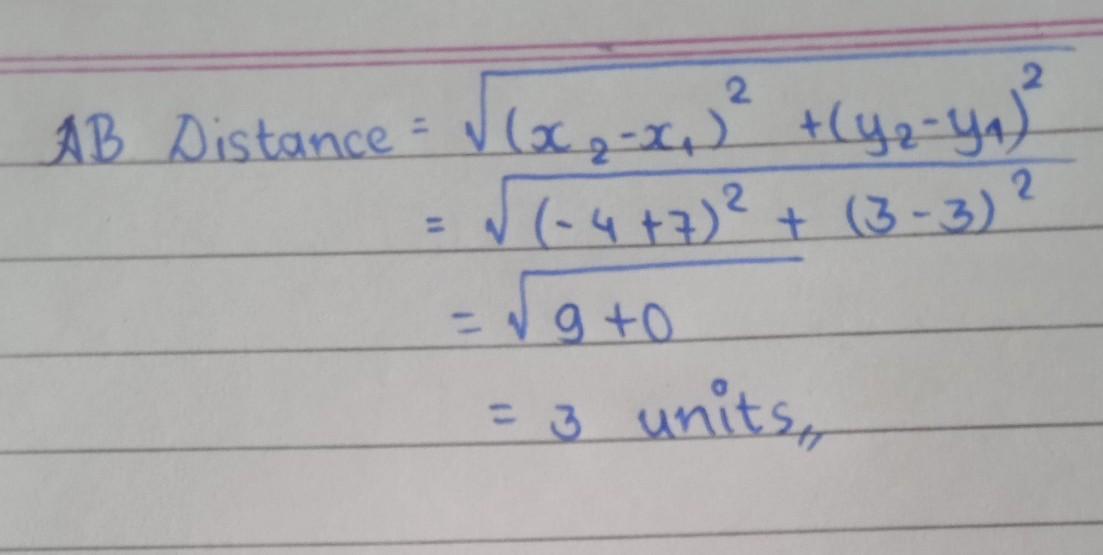 AB Distance = √(x₂-x₁)² +(y₂-y₁)²
= √(-4+7)² + (3-3)²
= √9+0
= 3 units,,